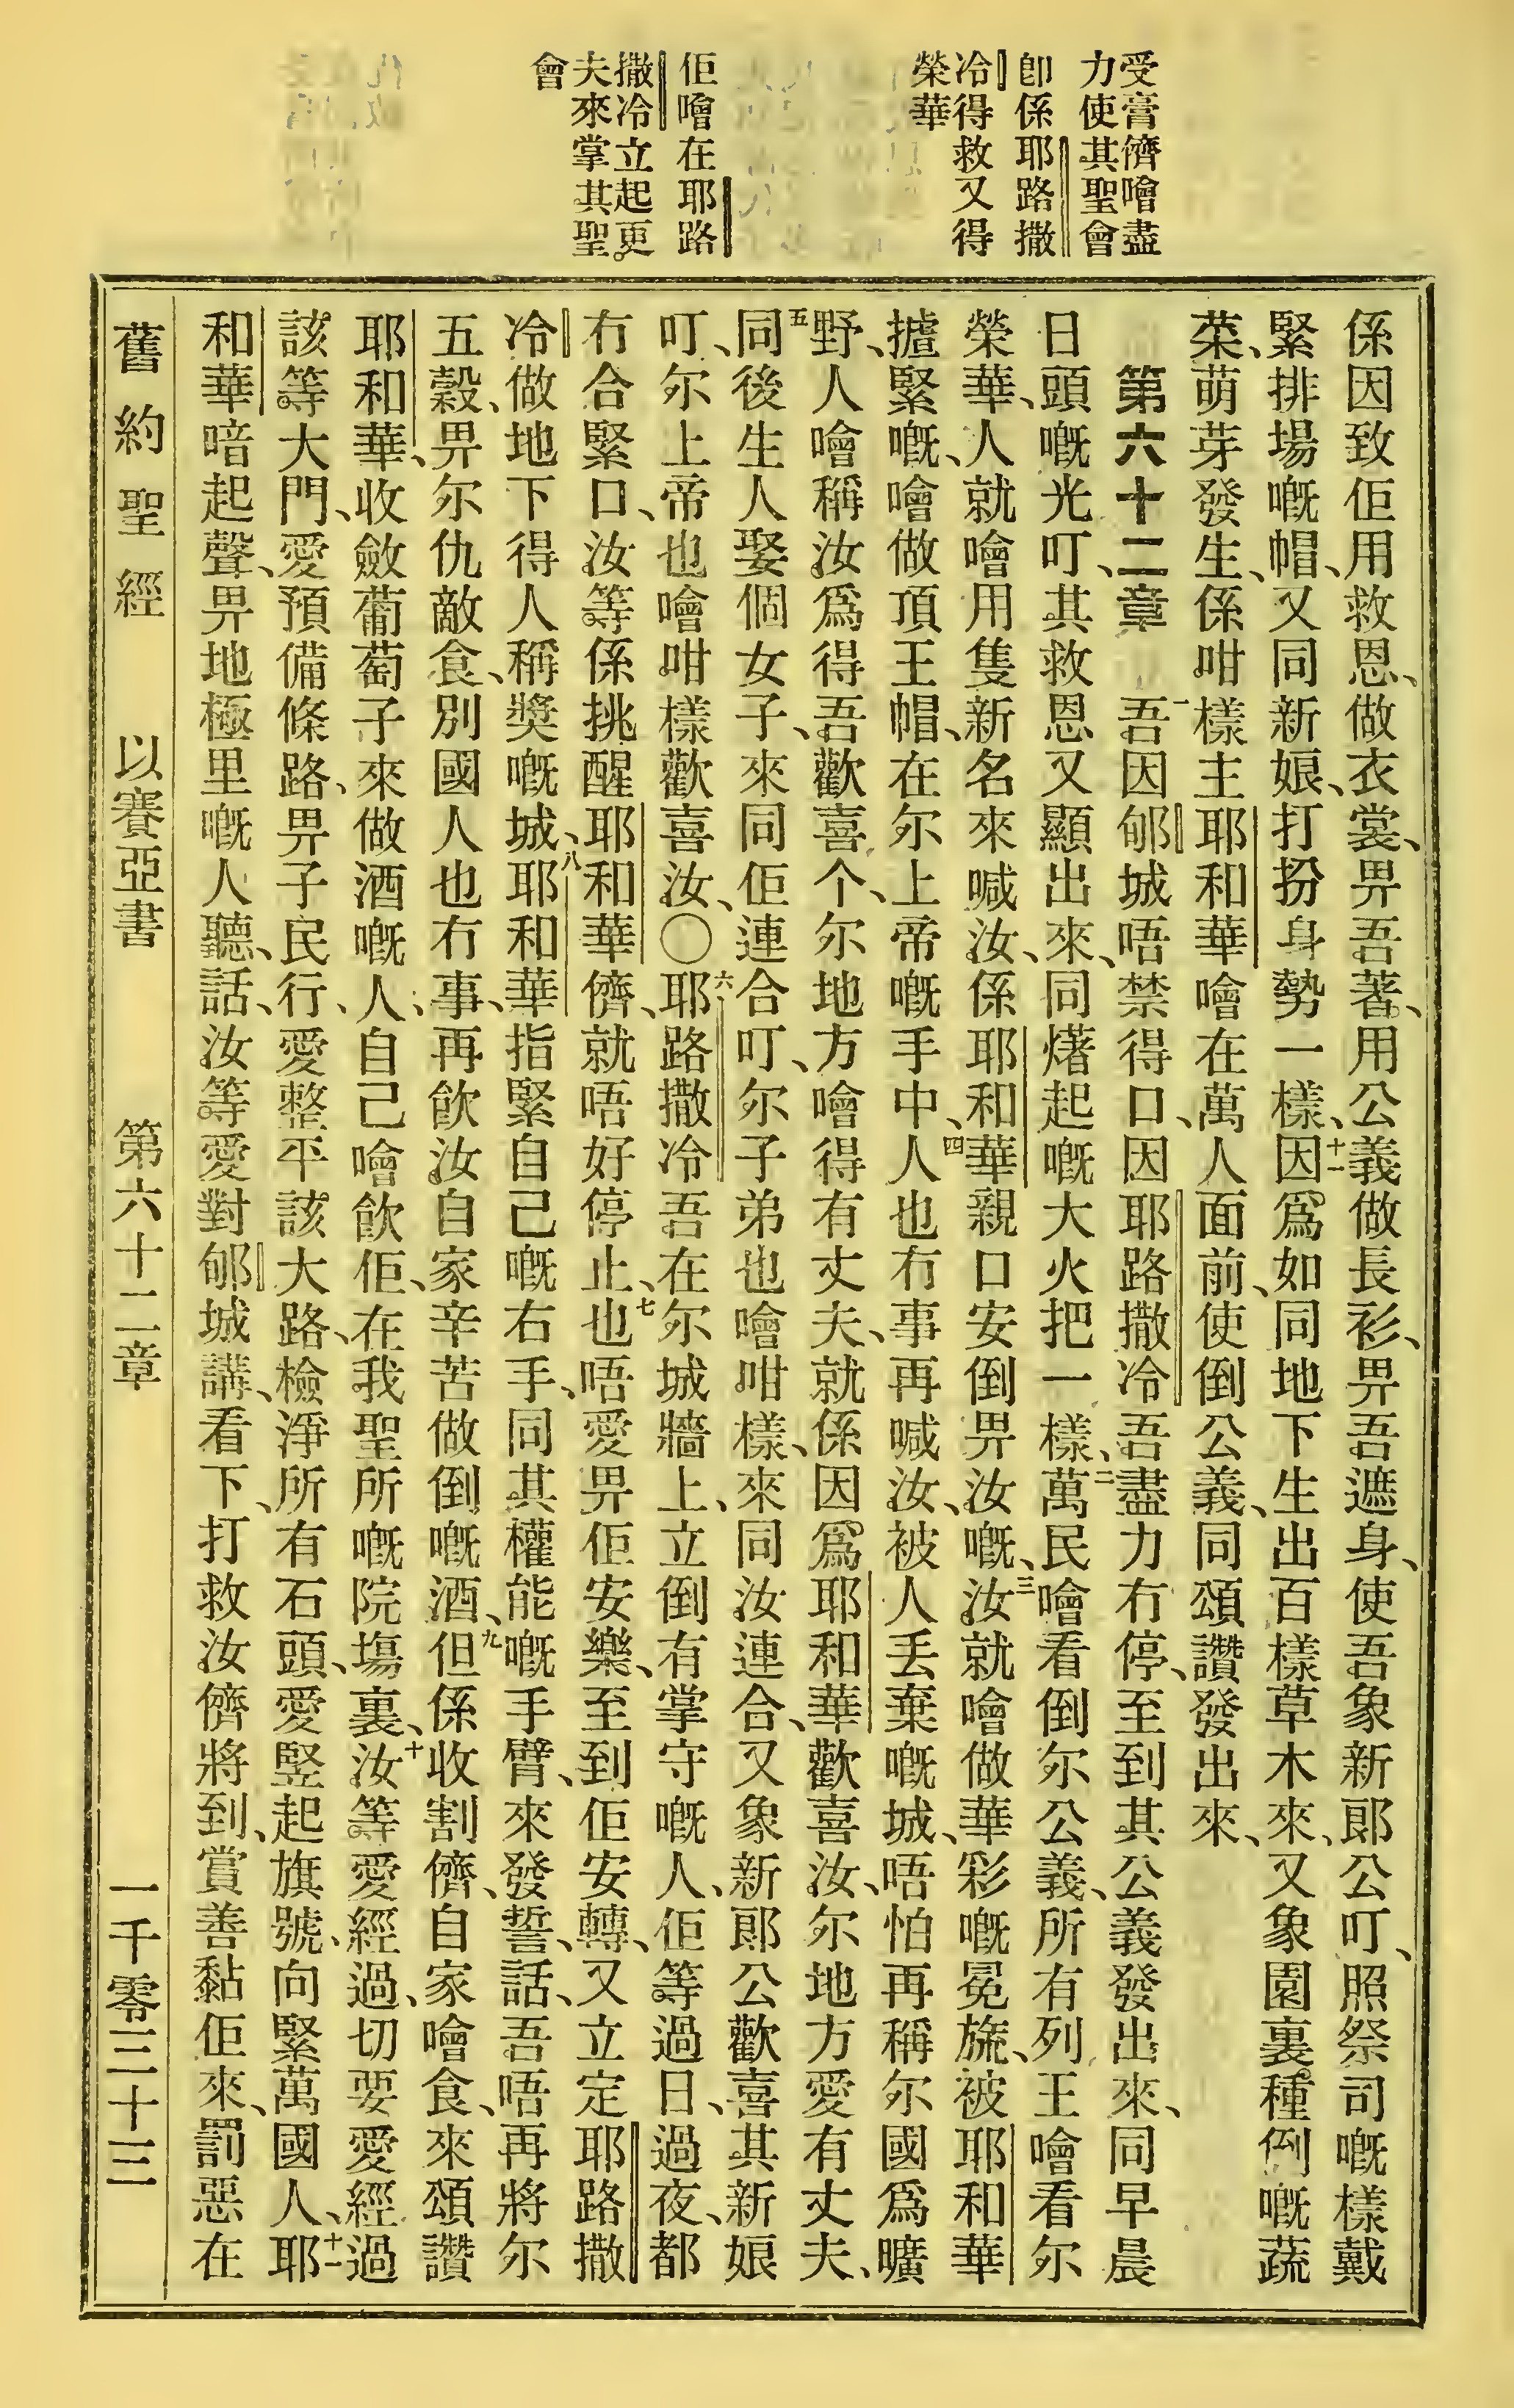 受膏儕噲盡
力使其聖會
卽係耶路撒
冷得救又得
榮華
佢噲在耶路
撒冷立起更
夫來掌其聖
會
係因致佢用救恩、做衣裳、畀吾著、用公義做長衫、畀吾遮身、使吾象新郞公叮、照祭司嘅樣戴
緊排場嘅帽、又同新娘、打扮身勢一樣、十一因爲如同地下生出百樣草木來、又象園裏種倒嘅蔬
菜、萌芽發生、係咁樣主耶和華噲在萬人面前、使倒公義、同頌讚發出來、
第六十二章 一吾因郇城唔禁得口、因耶路撒冷吾盡力冇停、至到其公義發出來、同早晨
日頭嘅光叮、其救恩又顯出來、同㷮起嘅大火把一樣、二萬民噲看倒尔公義、所有列王噲看尔
榮華、人就噲用隻新名來喊汝、係耶和華親口安倒畀汝嘅、三汝就噲做華彩嘅冕旒、被耶和華
攎緊嘅、噲做頂王帽、在尔上帝嘅手中、四人也冇事再喊汝、被人丢棄嘅城、唔怕再稱尔國爲曠
野、人噲稱汝爲得吾歡喜个、尔地方噲得有丈夫、就係因爲耶和華歡喜汝、尔地方愛有丈夫、
五同後生人娶個女子、來同佢連合叮、尔子弟也噲咁樣、來同汝連合、又象新郞公歡喜其新娘
叮、尔上帝也噲咁樣歡喜汝、〇六耶路撒冷吾在尔城牆上、立倒有掌守嘅人、佢等過日、過夜、都
冇合緊口、汝等係挑醒耶和華儕、就唔好停止、七也唔愛畀佢安樂、至到佢安轉、又立定耶路撒
冷做地下得人稱獎嘅城、八耶和華指緊自己嘅右手、同其權能嘅手臂、來發誓、話、吾唔再將尔
五穀、畀尔仇敵食、別國人也冇事、再飮汝自家辛苦做倒嘅酒、九但係收割儕、自家噲食、來頌讚
耶和華、收斂葡萄子來做酒嘅人、自己噲飮佢、在我聖所嘅院塲裏、十汝等愛經過、切要愛經過
該等大門、愛預備條路、畀子民行、愛整平該大路、檢淨所有石頭、愛竪起旗號、向緊萬國人、十一耶
和華喑起聲、畀地極里嘅人聽、話、汝等愛對郇城講、看下、打救汝儕將到、賞善黏佢來、罰惡在
舊約聖經 以賽亞書 第六十二章 一千零三十三